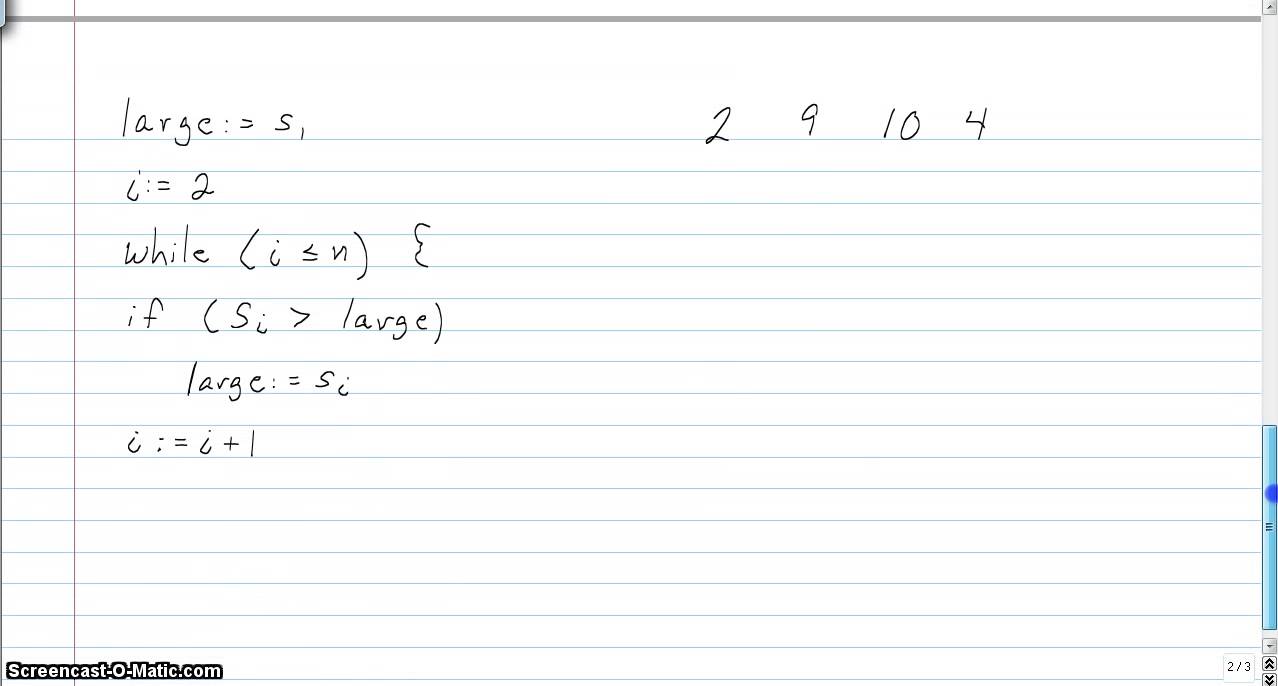 large := s₁ 2 9 10 4
i := 2
while (i ≤ n) {
if (Sᵢ > large)
large := sᵢ
i := i + 1
Screencast-O-Matic.com
2 / 3